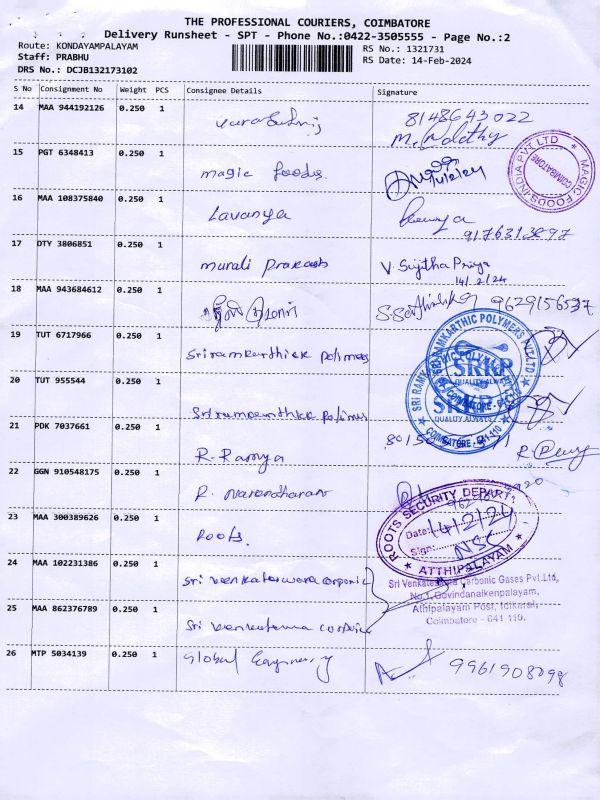 THE PROFESSIONAL COURIERS, COIMBATORE
Delivery Runsheet - SPT - Phone No.:0422-3505555 - Page No.:2
Route: KONDAYAMPALAYAM
RS No.: 1321731
Staff: PRABHU
RS Date: 14-Feb-2024
DRS No.: DCJB132173102
S No Consignment No Weight PCS Consignee Details Signature
14 MAA 944192126 0.250 1
8148643022
15 PGT 6348413 0.250 1 magic foods
MAGIC FOODS INDIA PVT LTD COIMBATORE
16 MAA 108375840 0.250 1 Lavanya
17 DTY 3806851 0.250 1 murali prakash V. Sujitha Priya
14/2/24
18 MAA 943684612 0.250 1 9629156537
19 TUT 6717966 0.250 1 Sriramkarthick polimers
SRI RAMKARTHIC POLYMERS PVT.LTD
SRKP
QUALITY ALWAYS
COIMBATORE - 641 110
20 TUT 955544 0.250 1
21 PDK 7037661 0.250 1 R. Ramya
22 GGN 910548175 1 0.250 1 R. Narendharan
23 MAA 300389626 0.250 1 Roots.
ROOTS SECURITY DEPART.
Date: 14/2/24
Sign: NSC
ATTHIPALAYAM
24 MAA 102231386 0.250 1 Sri venkateswara corponic
Sri Venkateswara Carbonic Gases Pvt.Ltd,
No.1, Govindanaikenpalayam,
Athipalayam Post, Idikarai,
Coimbatore - 641 110.
25 MAA 862376789 0.250 1
26 MTP 5034139 0.250 1 Global Engineery 9961908098